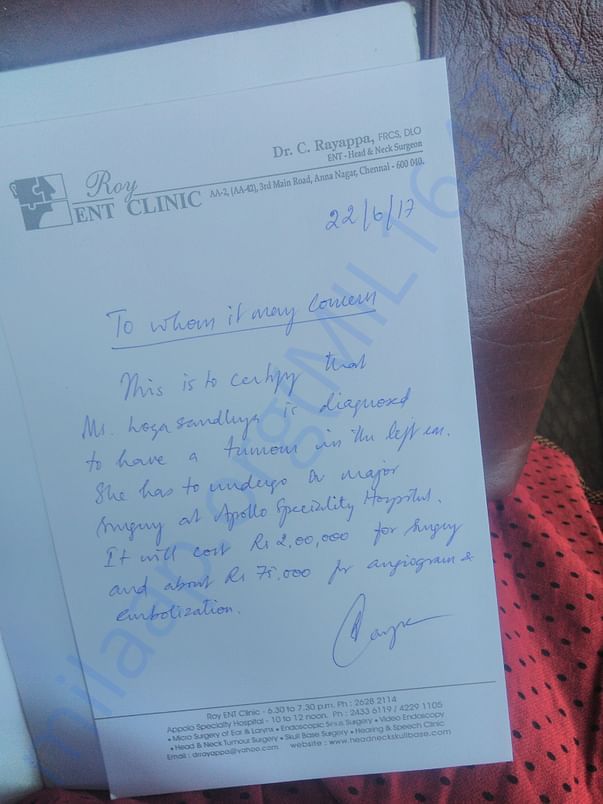 Dr. C. Rayappa, FRCS, DLO
ENT - Head & Neck Surgeon
Roy
ENT CLINIC AA-2, (AA-42), 3rd Main Road, Anna Nagar, Chennai - 600 040.
22/6/17
To whom it may concern
This is to certify that
Ms. Logasandhya is diagnosed
to have a tumour in the left ear.
She has to undergo a major
surgery at Apollo Speciality Hospital.
It will cost Rs 2,00,000 for surgery
and about Rs 75,000 for angiogram &
embolization.
Roy ENT Clinic - 6.30 to 7.30 p.m. Ph : 2628 2114
Appolo Specialty Hospital - 10 to 12 noon. Ph : 2433 6119 / 4229 1105
• Micro Surgery of Ear & Larynx • Endoscopic Sinus Surgery • Video Endoscopy
• Head & Neck Tumour Surgery • Skull Base Surgery • Hearing & Speech Clinic
Email : drrayappa@yahoo.com website : www.headneckskullbase.com